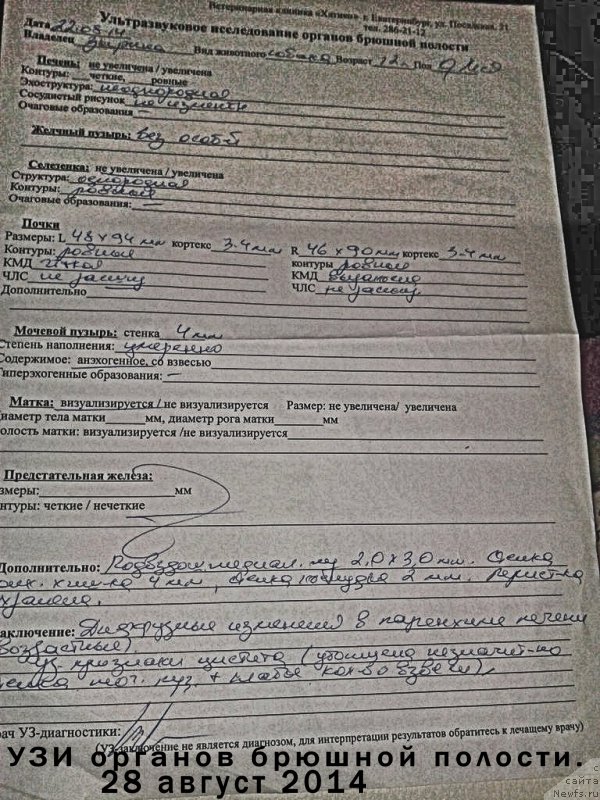 Ветеринарная клиника «Хатико» г. Екатеринбург, ул. Посадская, 51
тел. 286-21-12
Ультразвуковое исследование органов брюшной полости
Дата
Владелец Вид животного собака Возраст 12л Пол
Печень: не увеличена / увеличена
Контуры: четкие, ровные
Эхоструктура: неоднородная
Сосудистый рисунок не изменен
Очаговые образования –
Желчный пузырь: без особ-й
Селезенка: не увеличена / увеличена
Структура: однородная
Контуры: ровные
Очаговые образования: –
Почки
Размеры: L 48 x 94 мм кортекс 3-4 мм R 46 x 90 мм кортекс 3-4 мм
Контуры: ровные контуры ровные
КМД КМД
ЧЛС не расшир ЧЛС не расшир
Дополнительно
Мочевой пузырь: стенка 4 мм
Степень наполнения: умеренно
Содержимое: анэхогенное, со взвесью
Гиперэхогенные образования: –
Матка: визуализируется / не визуализируется Размер: не увеличена/ увеличена
диаметр тела матки мм, диаметр рога матки мм
полость матки: визуализируется /не визуализируется
Предстательная железа:
змеры: мм
нтуры: четкие / нечеткие
Дополнительно: Подвздош. медиал. лу 2,0 x 3,0 мм. Стенка
киш-ка 4 мм, стенка желудка 2 мм. Перист-ка
аключение: Диффузные изменения в паренхиме печени
(возрастные)
УЗ признаки цистита (утолщена незначит-но
стенка моч. пуз. + кол-во взвеси)
рач УЗ-диагностики:
(УЗ-заключение не является диагнозом, для интерпретации результатов обратитесь к лечащему врачу)
УЗИ органов брюшной полости.
28 август 2014
с
сайта
Newfs.ru